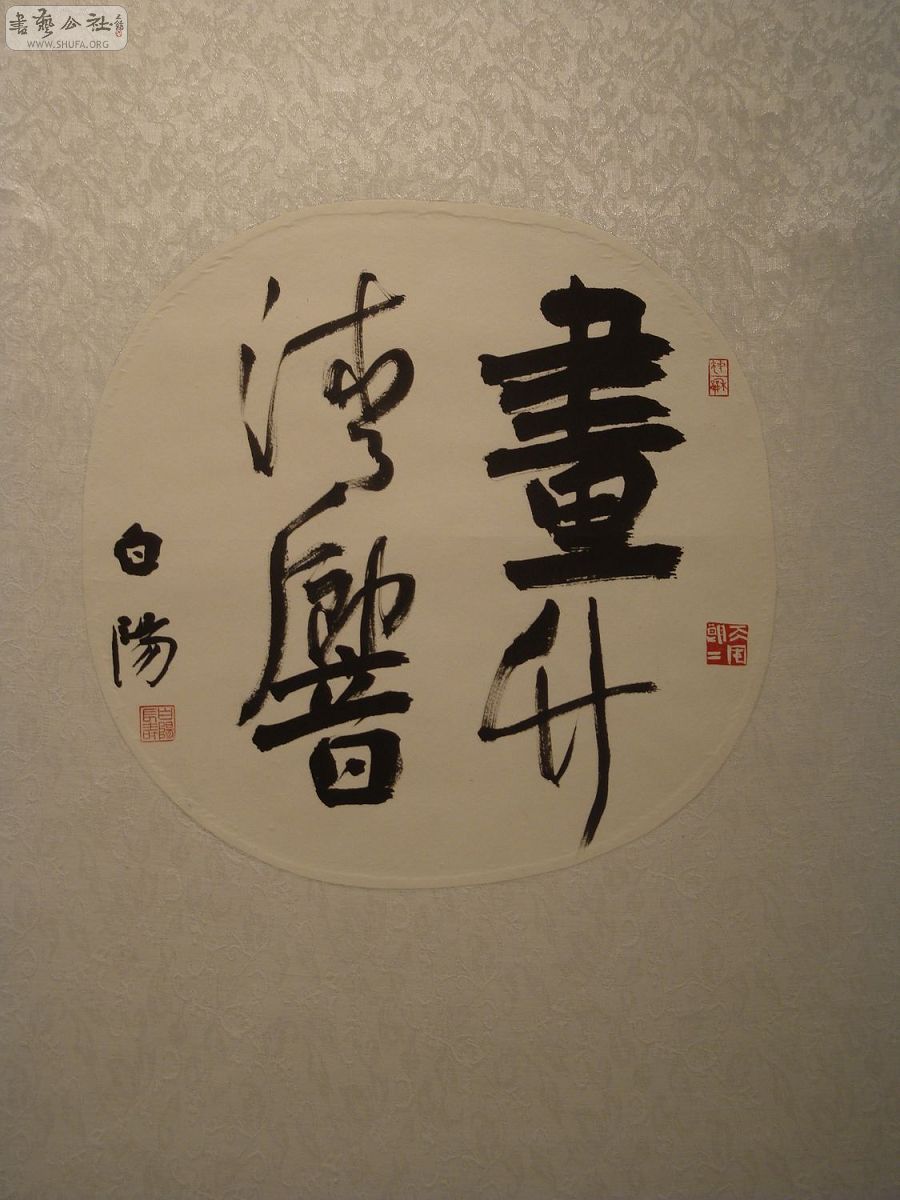 書藝公社
WWW.SHUFA.ORG
畫竹
清響
白陽